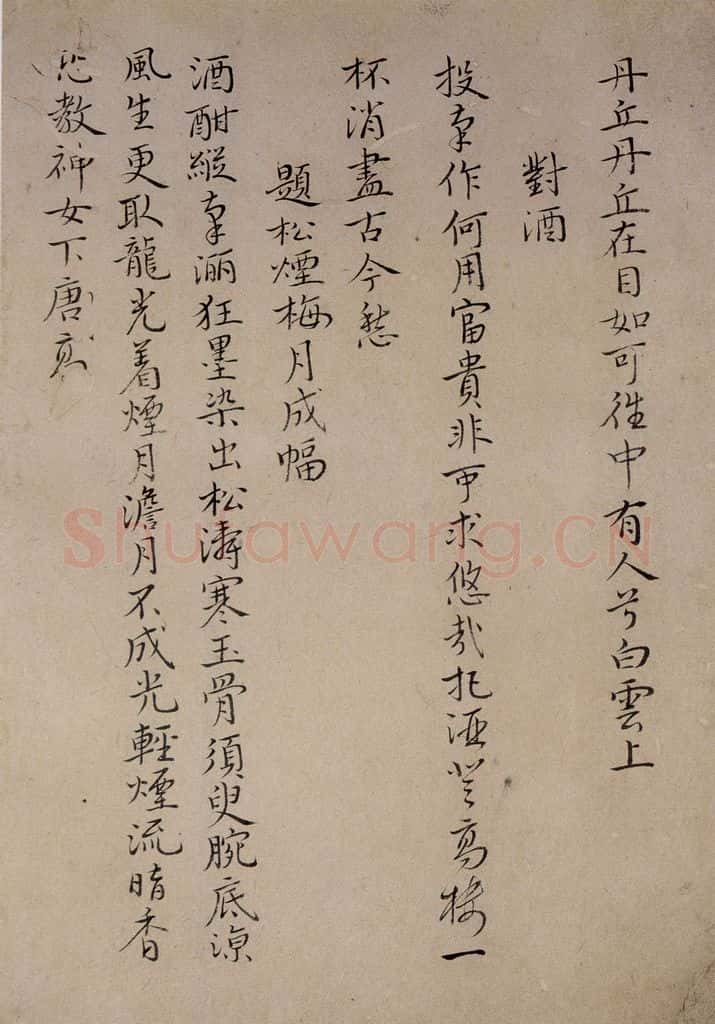 丹丘丹丘在目如可往中有人兮白雲上
對酒
投筆作何用富貴非所求悠哉把酒登高樓一
杯消盡古今愁
題松煙梅月成幅
酒酣縱筆洒狂墨染出松濤寒玉骨須臾腕底涼
風生更取龍光着煙月澹月不成光輕煙流暗香
教神女下唐
Shufawang.CN